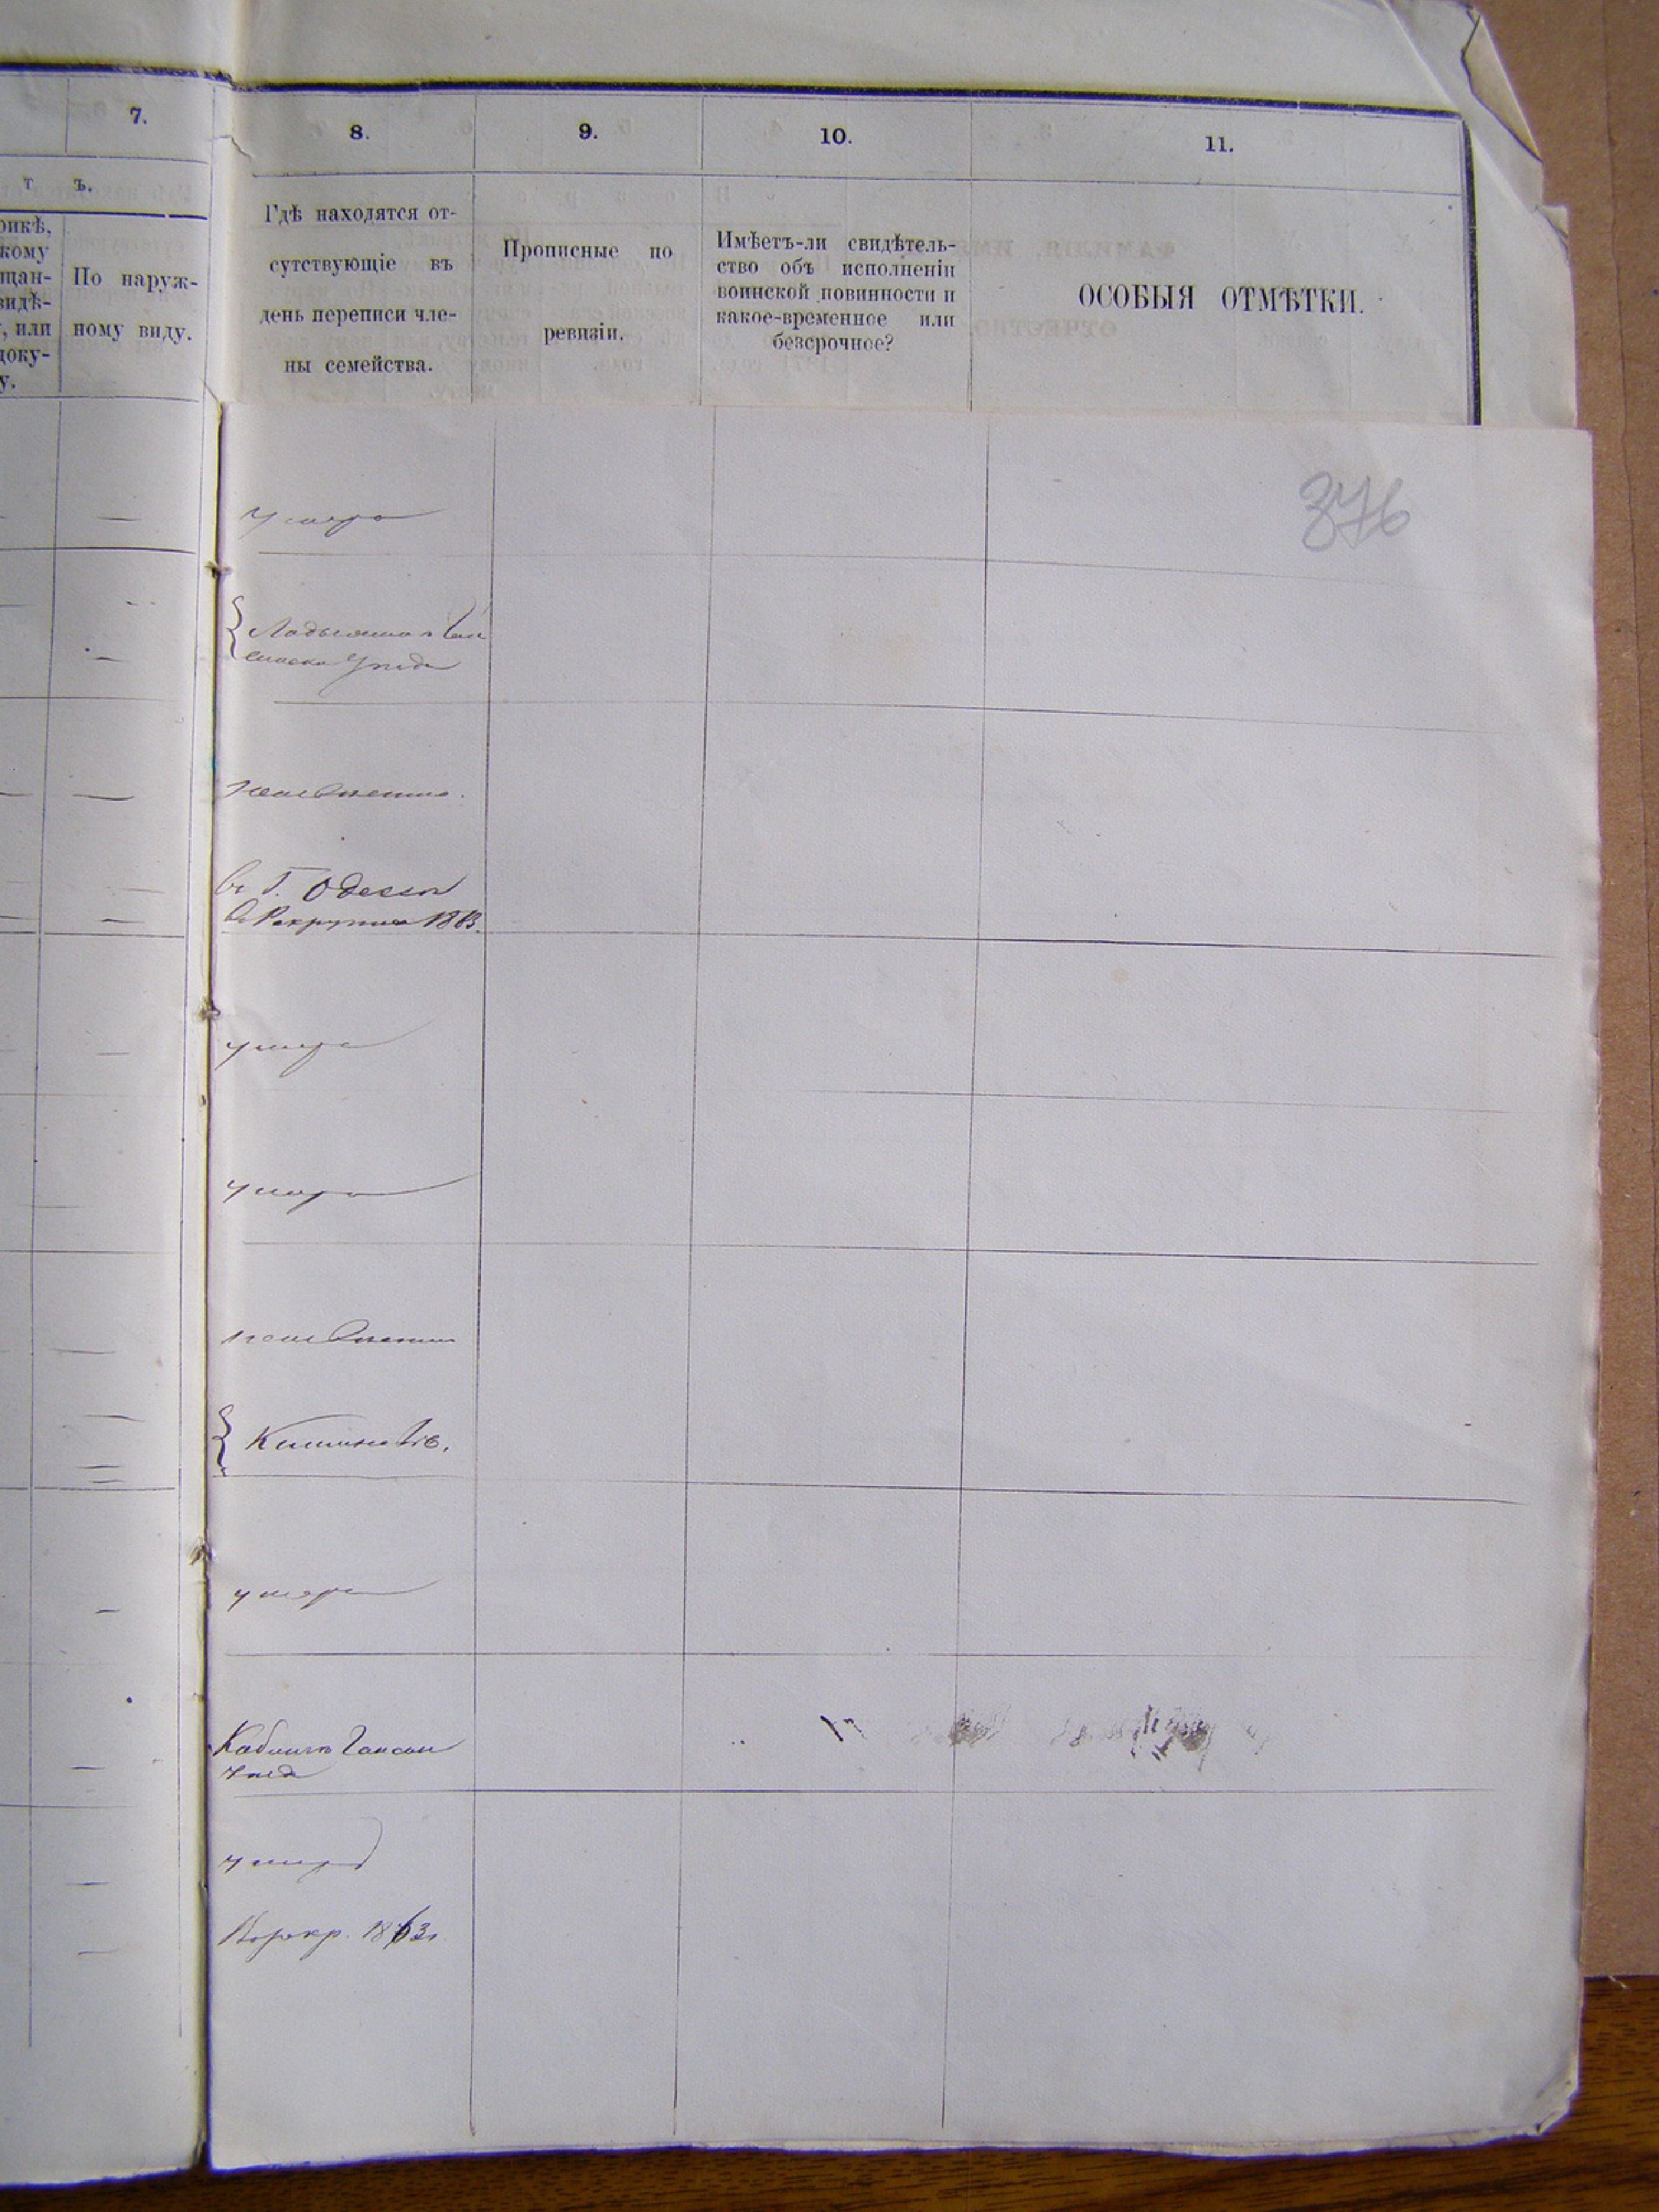 7.
т ъ.
рикѣ,
кому
щан-
видѣ-
, или
доку-
у.
По наруж-
ному виду.
8.
Гдѣ находятся от-
сутствующіе въ
день переписи чле-
ны семейства.
9.
Прописные по
ревизіи.
10.
Имѣетъ-ли свидѣтель-
ство объ исполненіи
воинской повинности и
какое-временное или
безсрочное?
11.
ОСОБЫЯ ОТМѢТКИ.
376
умеръ
неизвѣстно.
въ Г. Одессѣ
1863.
умеръ
умеръ
неизвѣстно
Кишиневѣ.
умеръ
умеръ
1863